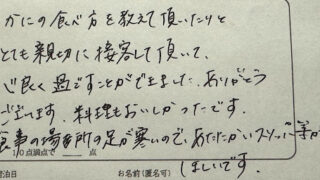 かにの食べ方を教えて頂いたりと
とても親切に接客して頂いて、
心良く過ですことができました。ありがとう
ございます。料理もおいしかったです。
食事の場所の足が寒いので、あたたかいスリッパ等が
ほしいです。
100点満点で 点
宿泊日 お名前(匿名可)